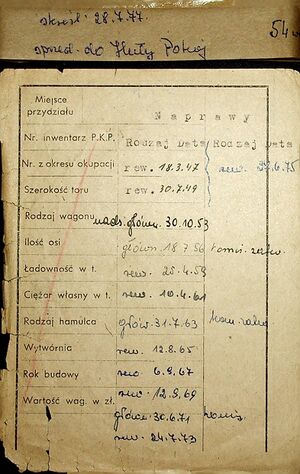 skreśl. 28.7.77.
sprzed. do Huty Pokój
54
Miejsce
przydziału
Naprawy
Nr. inwentarz P.K.P.
Rodzaj Data Rodzaj Data
Nr. z okresu okupacji
rew. 18.3.47
rew. 6.75
Szerokość toru
rew. 30.7.49
Rodzaj wagonu
nads. główn. 30.10.53
Ilość osi
główn. 18 7 56
Ładowność w t.
rew. 25.4.59
Ciężar własny w t.
rew. 10.4.61
Rodzaj hamulca
główn. 31.7.63
Wytwórnia
rew. 12.8.65
Rok budowy
rew. 6.9.67
Wartość wag. w zł.
rew. 12.9.69
główn. 30.6.71
rew. 24.7.73